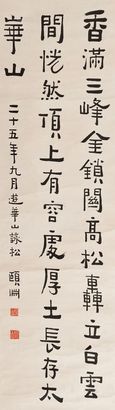 香滿三峰金鎖關高松轟轟立白雲
間恍然頂上有容處厚土長存太
華山
二十五年九月遊華山詠松 頤淵